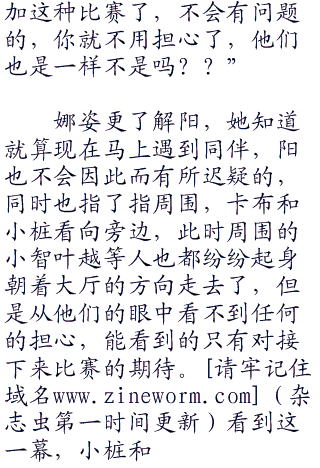 加这种比赛了，不会有问题
的，你就不用担心了，他们
也是一样不是吗？？”
娜姿更了解阳，她知道
就算现在马上遇到同伴，阳
也不会因此而有所迟疑的，
同时也指了指周围，卡布和
小桩看向旁边，此时周围的
小智叶越等人也都纷纷起身
朝着大厅的方向走去了，但
是从他们的眼中看不到任何
的担心，能看到的只有对接
下来比赛的期待。[请牢记住
域名www.zineworm.com]（杂
志虫第一时间更新）看到这
一幕，小桩和